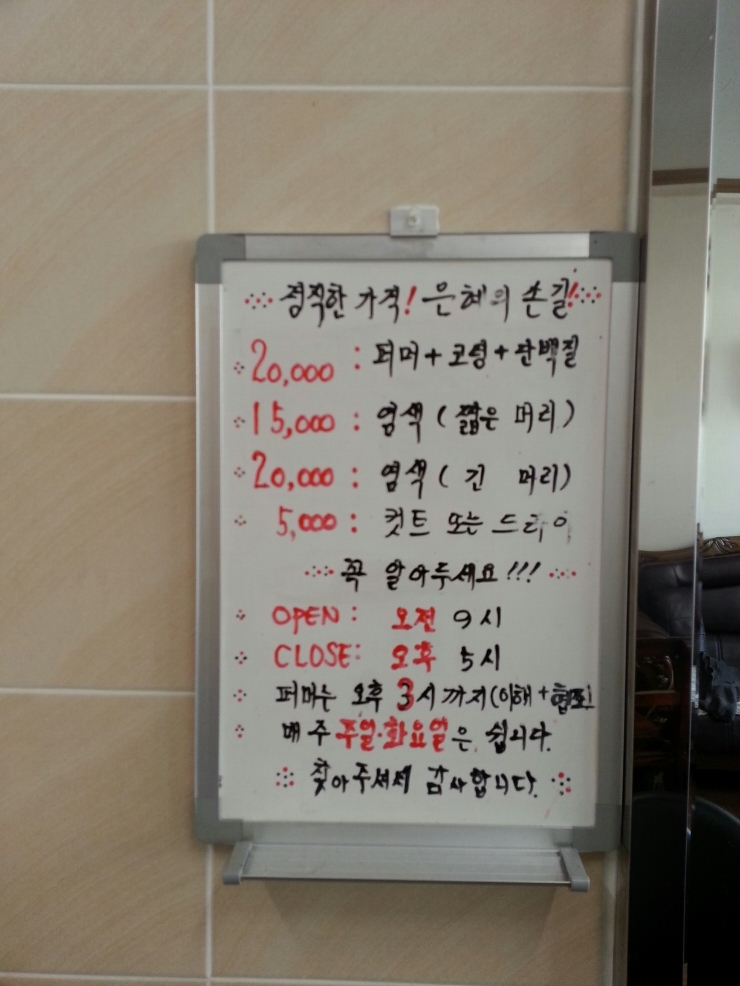 정직한 가격! 은혜의 손길!
20,000 : 퍼머 + 코팅 + 단백질
15,000 : 염색 ( 짧은 머리 )
20,000 : 염색 ( 긴 머리 )
5,000 : 컷트 또는 드라이
꼭 알아두세요!!!
OPEN : 오전 9시
CLOSE : 오후 5시
퍼머는 오후 3시까지(이해 + 협조)
매주 주일·화요일은 쉽니다.
찾아주셔서 감사합니다.